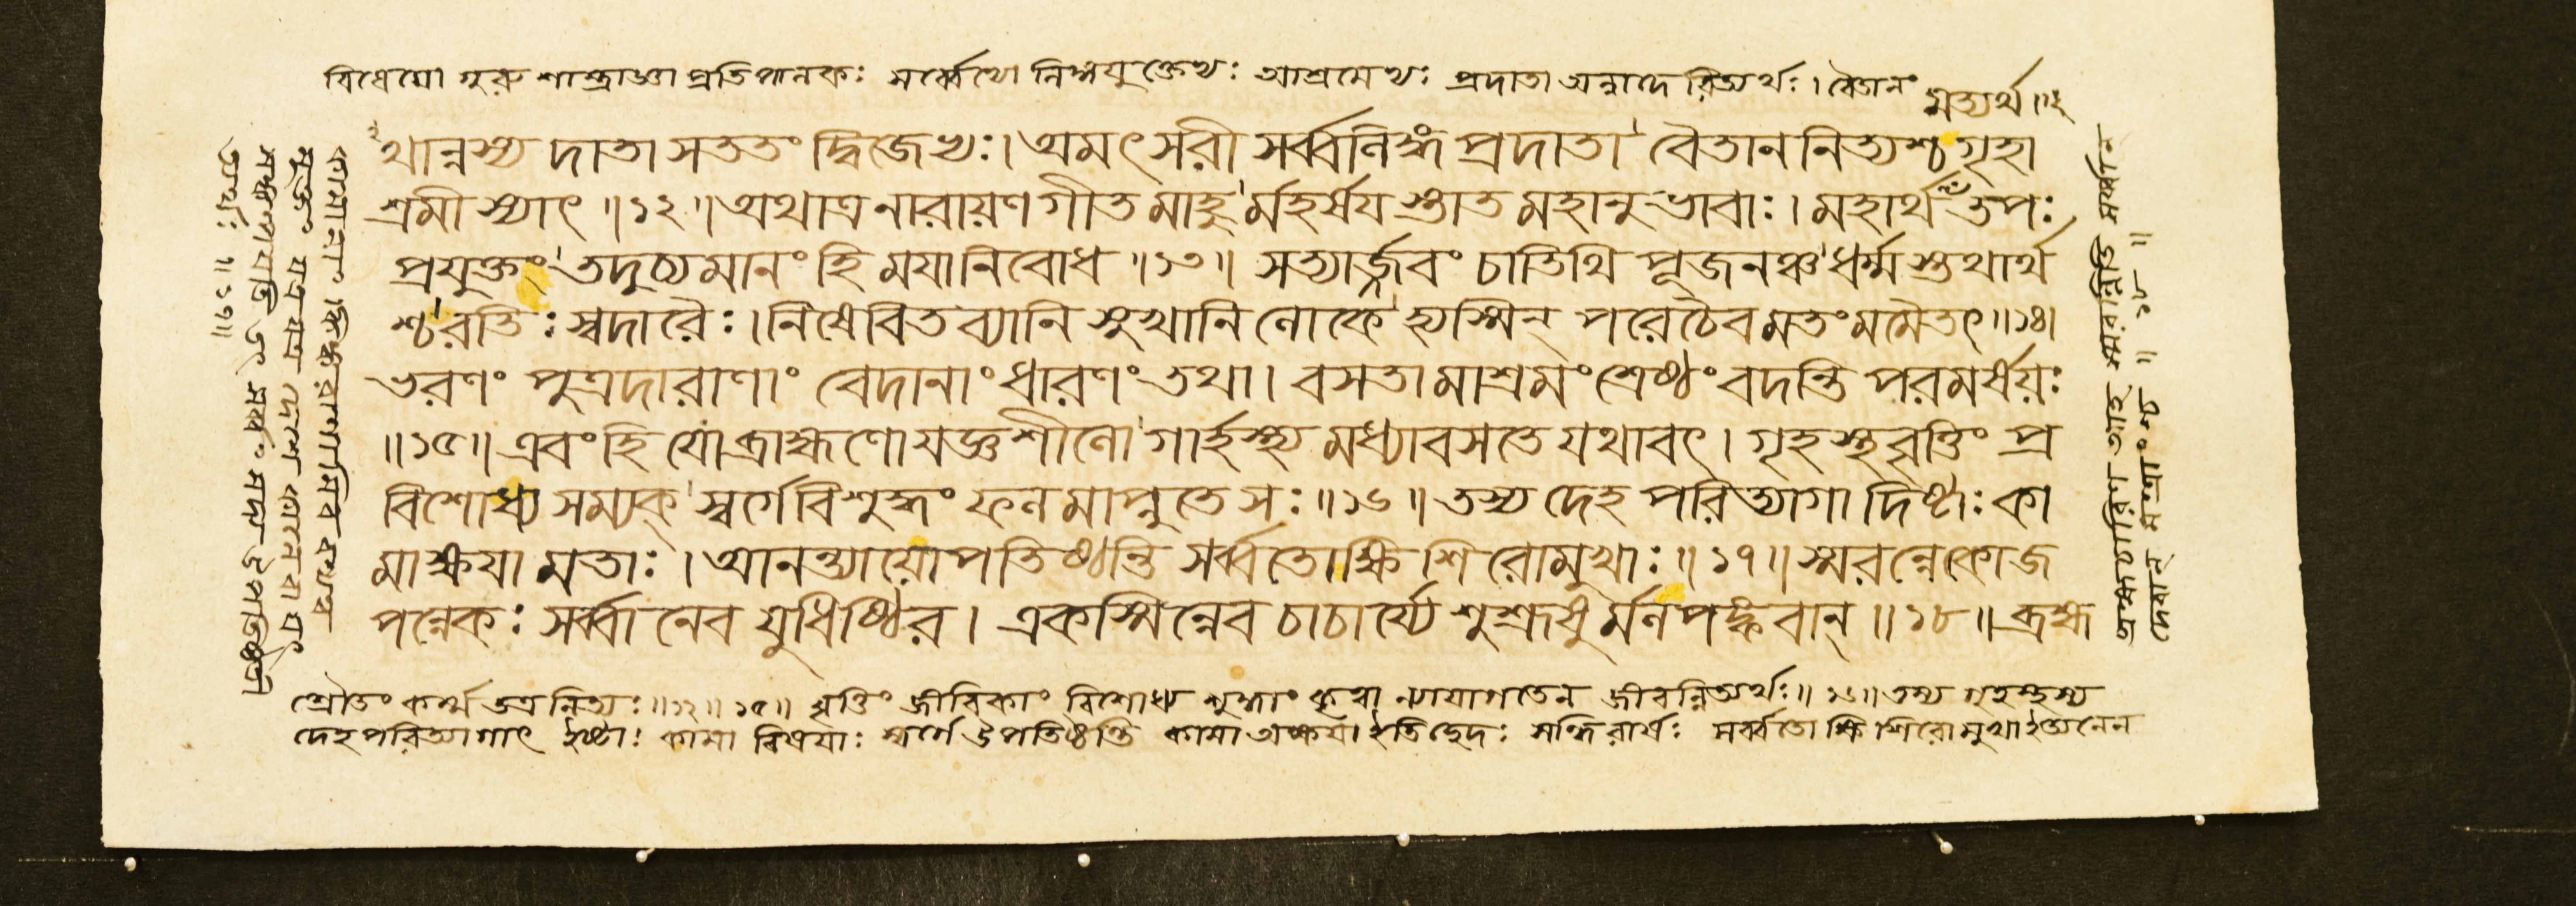 বিধেয়ো গুরু শাস্ত্রাজ্ঞা প্রতিপালকঃ সর্ব্বেভ্যো লিঙ্গযুক্তেভ্যঃ আশ্রমেভ্যঃ প্রদাতা অন্নাদেরিত্যর্থঃ। বৈতানং
মিত্যর্থ॥১২
থান্নস্য দাতা সততং দ্বিজেভ্যঃ। অমৎসরী সর্ব্বলিঙ্গং প্রদাতা বৈতাননিত্যশ্চ গৃহা
শ্রমী স্যাৎ ॥১২॥ অথাত্র নারায়ণগীতমাহু র্মহর্ষয স্তাত মহানুভাবাঃ। মহার্থ তপঃ
প্রযুক্তং তদুচ্যমানং হি ময়া নিবোধ ॥১৩॥ সত্যার্জ্জবং চাতিথি পূজনঞ্চ ধর্ম্ম স্তথার্থ
শ্চ রতিঃ স্বদারৈঃ। নিষেবিতব্যানি সুখানি লোকে হ্যস্মিন্ পরে চৈব মতং মমৈতৎ॥১৪।
ভরণং পুত্রদারাণাং বেদানাং ধারণং তথা। বসতামাশ্রমং শ্রেষ্ঠং বদন্তি পরমর্ষয়ঃ
॥১৫॥ এবং হি যো ব্রাহ্মণো যজ্ঞশীলো গার্হস্থ্য মধ্যাবসতে যথাবৎ। গৃহস্থবৃত্তিং প্র
বিশোধ্য সম্যক্ স্বর্গে বিশুদ্ধং ফলমাপ্নুতে সঃ ॥১৬॥ তস্য দেহ পরিত্যাগাদিষ্টাঃ কা
মাক্ষয়া মতাঃ। আনন্ত্যায়োপতিষ্ঠন্তি সর্ব্বতোক্ষি শিরোমুখাঃ ॥১৭॥ স্মরন্নেকো জ
পন্নেকঃ সর্ব্বানেব যুধিষ্ঠির। একস্মিন্নেব চাচার্য্যে শুশ্রূষু র্মলপঙ্কবান্ ॥১৮॥ ব্রহ্ম
শ্রৌতং কর্ম্ম তত্র নিত্যঃ॥১২॥ ১৫॥ বৃত্তিং জীবিকাং বিশোধ্য শুদ্ধাং কৃত্বা ন্যায়াগতেন জীবন্নিত্যর্থঃ॥ ১৬॥ তস্য গৃহস্থস্য
দেহপরিত্যাগাৎ ইষ্টাঃ কামা বিষয়াঃ স্বর্গে উপতিষ্ঠন্তি কামা অক্ষয়া ইতি ছেদঃ সন্ধিরার্ষঃ সর্ব্বতোক্ষি শিরোমুখা ইত্যনেন
ব্রহ্মচারিণ আহ স্মরন্নিতি সর্ব্বান্